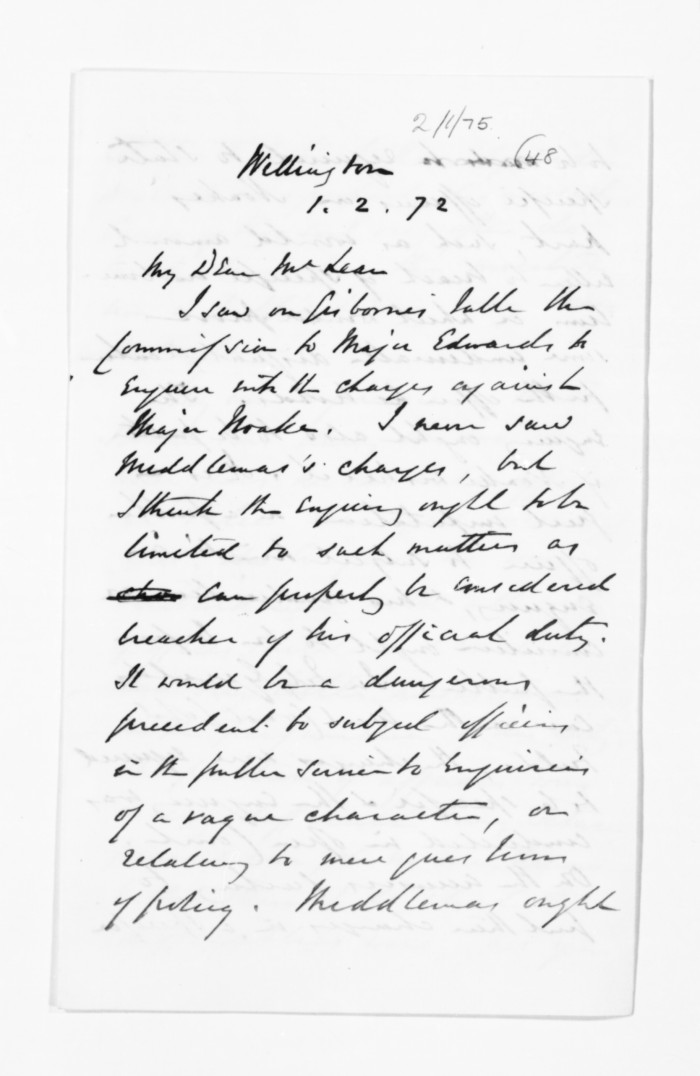 2/1/75.
48
Wellington
1. 2. 72
My Dear McLean
I saw on Gisborne's table the
Commission to Major Edwards to
Enquire into the charges against
Major Noake. I never saw
Middlemas's charges, but
I think the enquiry ought to be
limited to such matters as
can properly be considered
breaches of his official duty.
It would be a dangerous
precedent to subject officers
in the public service to Enquiries
of a vague character, or
relating to mere questions
of policy. Middlemas ought